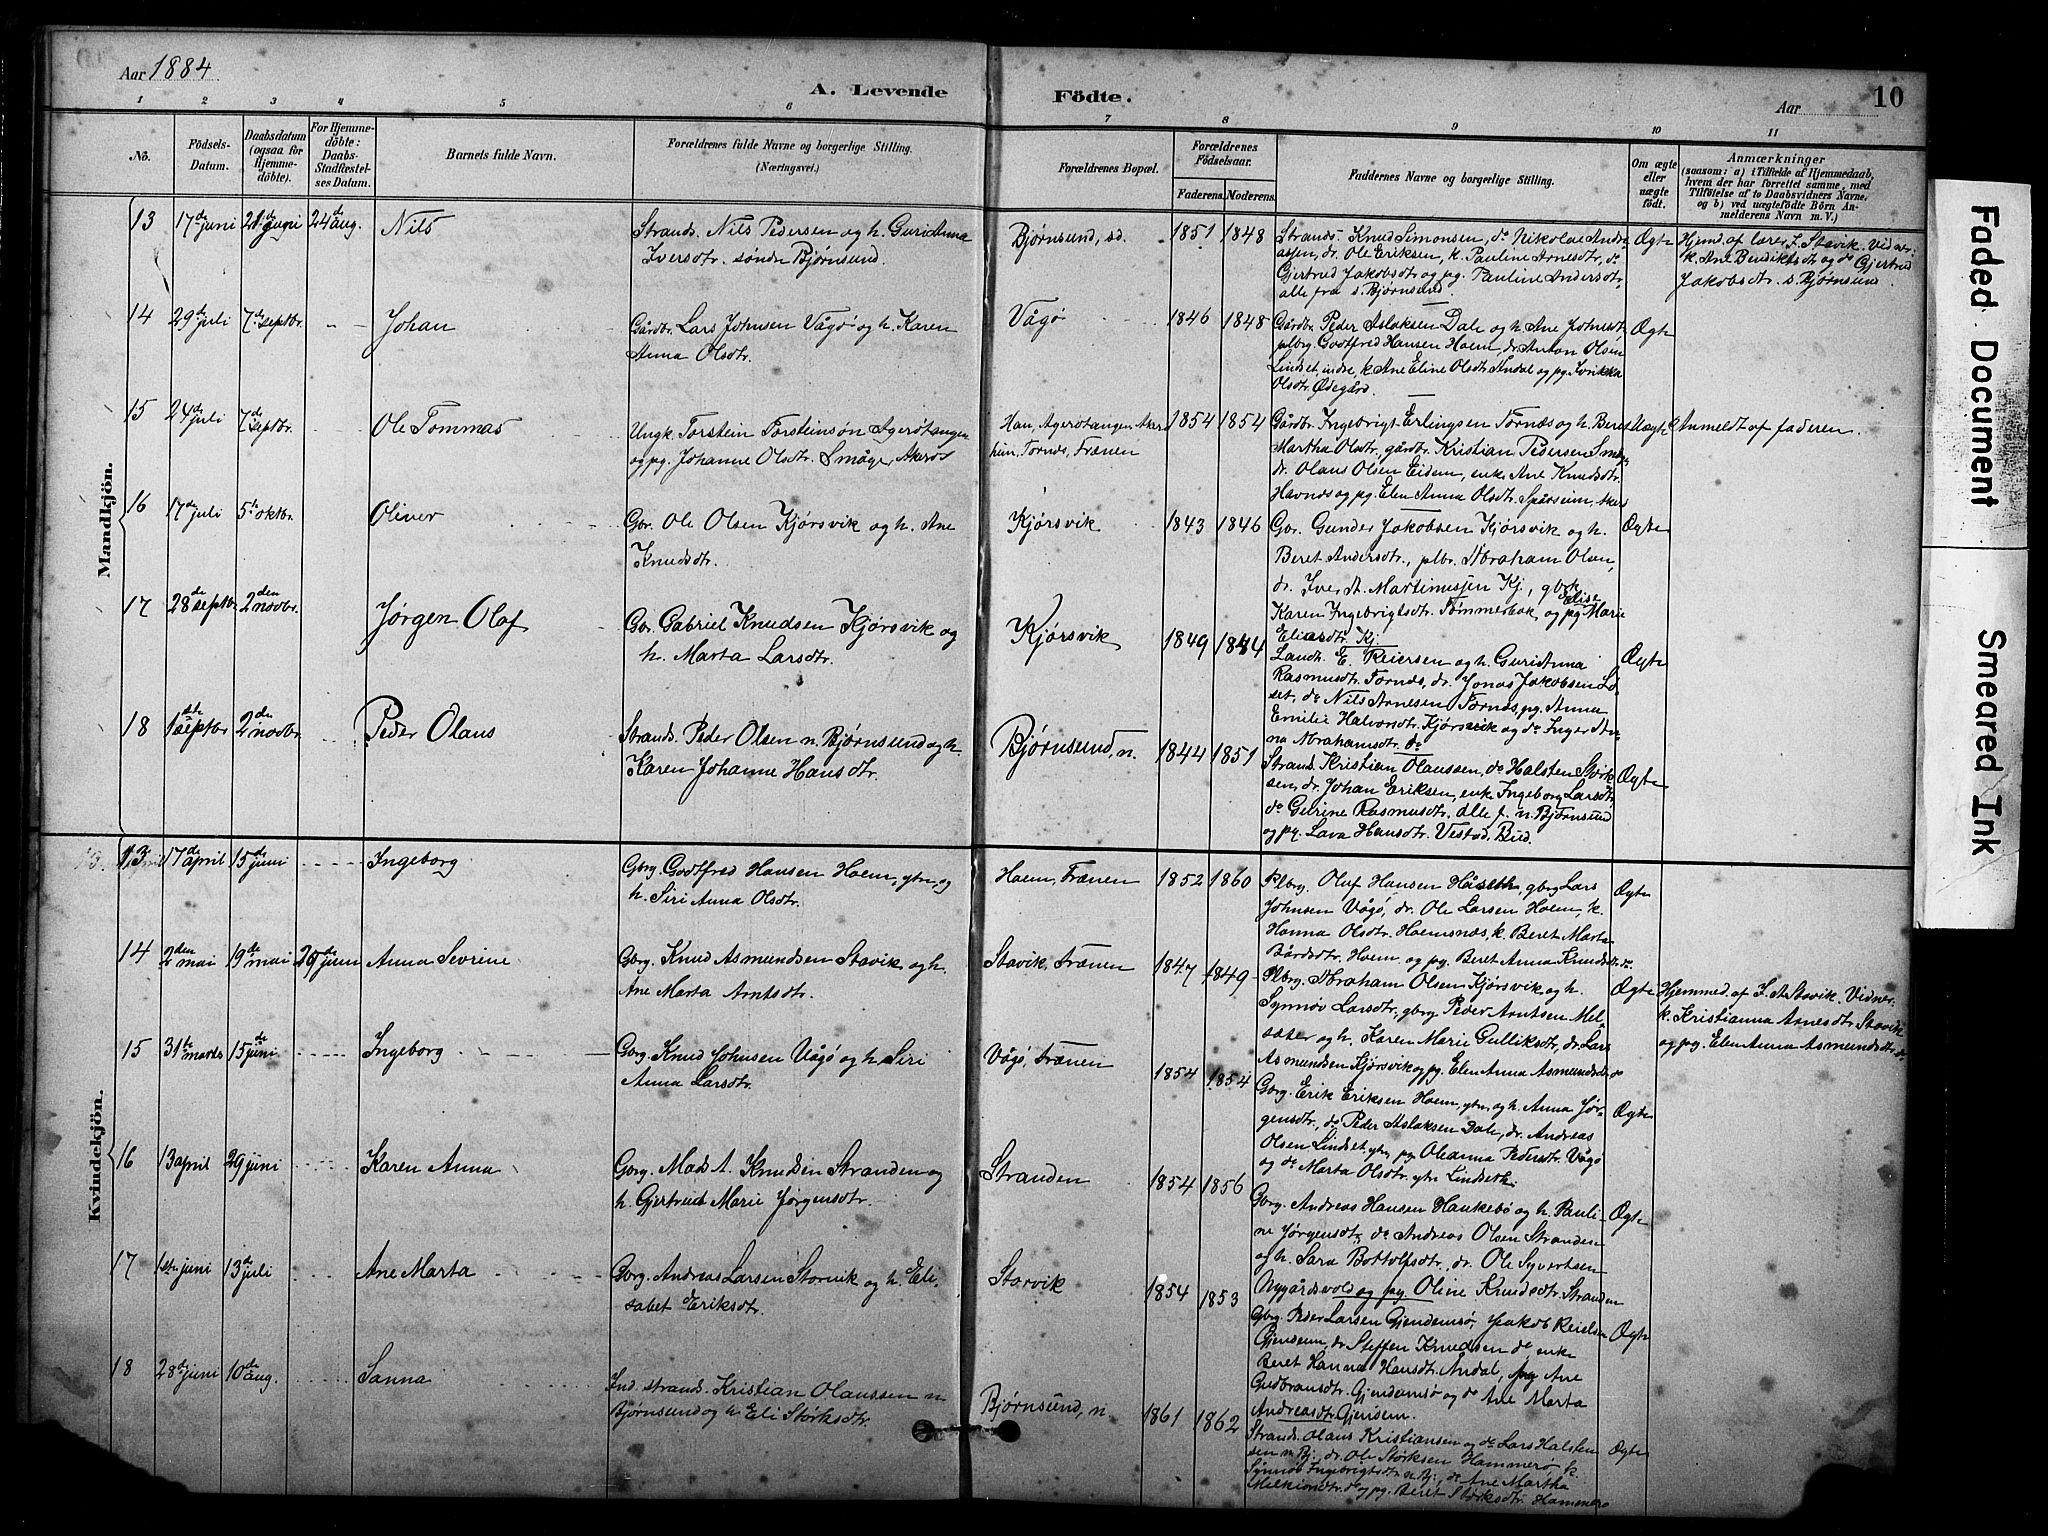 Aar 1884
A. Levende Födte.
Aar
10
1 2 3 4 5 6 7 8 9 10 11
No.
Födsels-Datum.
Daabsdatum (ogsaa for Hjemme-döbte).
For Hjemme-döbte: Daabs-Stadfæstel-ses Datum.
Barnets fulde Navn.
Forældrenes fulde Navne og borgerlige Stilling. (Næringsvei.)
Forældrenes Bopæl.
Forældrenes Födselsaar.
Faderens. Moderens.
Faddernes Navne og borgerlige Stilling.
Om ægte eller uægte födt.
Anmærkninger
(saasom: a) i Tilfælde af Hjemmedaab,
hvem der har forrettet samme, med
Tilföielse af to Daabsvidners Navne,
og b) ved uægtefödte Börn An-
melderens Navn m. V.)
Mandkjön.
13 17de juni 21de juni 24de aug. Nils
Strands. Nils Pedersen og h. Guri Anna
Iversdtr. søndr Bjørnsund.
Bjørnsund, sd. 1851 1848
Strands. Knud Simonsen, do Nikolai Andre
asen, dr. Ole Eriksen, k. Pauline Arnesdtr, do
Gjertrud Jakobsdtr og pg. Pauline Andersdtr.
alle fra s. Bjørnsund.
Ægte
Hjemd. af lærer I. Stavik. Vidner:
k. Ane Bendiktsdtr og do Gjertrud
Jakobsdtr. s. Bjørnsund.
14 29de juli 7de septbr. - - Johan
Gårdbr. Lars Johnsen Vågø og h. Karen
Anna Olsdtr.
Vågø 1846 1848
Gårdbr. Peder Aslaksen Dale og h. Ane Johnsdtr,
plbrg. Godtfred Hansen Hoem, dr. Anton Olsen
Lindset, indre, k. Ane Eline Olsdtr Andal og pg.
Olsdtr. Ødegård.
Ægte
15 24de juli 7de septbr. Ole Tommas
Ungk. Torstein Torsteinsøn Agerøtangen
og pg. Johanne Olsdtr. Småge, Akerø
Han, Agerøtangen, Aker
hun, Tornes, Frænen 1854 1854
Gårdbr. Ingebrigt Erlingsen Tornes og h. Beret
Martha Olsdtr, gårdbr. Kristian Pedersen Småge
dr. Olaus Olsen Eidem, enke Ane Knudsdtr.
Havnes og pg. Elen Anna Olsdtr. Aker
Uægte Anmeldt af faderen.
16 17de juli 5te oktbr. Oliver
Gbr. Ole Olsen Kjørsvik og h. Ane
Knudsdtr.
Kjørsvik 1843 1846
Gbr. Gunder Jakobsen Kjørsvik og h.
Beret Andersdtr., plbr. Abraham Olsen,
dr. Iver A. Martinussen Kj., gbrk
Karen Ingebrigtsdtr. Tømmerbak, og pg. Elise Marie
Eliasdtr. Kj.
Ægte
17 28de septbr. 2den novbr. Jørgen Olaf
Gbr. Gabriel Knudsen Kjørsvik og
h. Marta Larsdtr.
Kjørsvik 1849 1844
Landh. E. Reiersen og h. Guri Anna
Rasmusdtr. Tornes, dr. Jonas Jakobsen Lø-
set, do Nils Arnesen Tornes, pg. Anna
Emilie Halvorsdtr. Kjørsvik og do Inger An-
na Abrahamsdtr. do
Ægte
18 1ste septbr 2den novbr. Peder Olaus
Strands. Peder Olsen n. Bjørnsund og h.
Karen Johanne Hansdtr.
Bjørnsund, n. 1844 1851
Strand. Kristian Olaussen, do Halsten Størk
sen, dr. Johan Eriksen, enk. Ingeborg Larsdtr.
do Gurine Rasmusdtr. alle f. n. Bjørnsund
og pg. Lava Hansdtr. Vestad. Bud.
Ægte
Kvindekjön.
13 17de april 15de juni Ingeborg
Gbrg. Godtfred Hansen Hoem, ytre, og
h. Siri Anna Olsdtr.
Hoem, Frænen 1852 1860
Plbrg. Oluf Hansen Håseth, gbrg Lars
Johnsen Vågø, dr. Ole Larsen Hoem, k.
Hanna Olsdtr. Hoemsnæs, k. Beret Marta
Bårdsdtr. Hoem, og pg. Beret Anna Knudsdtr. do.
Ægte
14 2den mai 19de mai 29de juni Anna Sevrine
Gbrg. Knud Asmundsen Stavik og h.
Ane Marta Arntsdtr.
Stavik, Frænen 1847 1849
Plbrg. Abraham Olsen Kjørsvik og h.
Synnøv Larsdtr, gbrg Peder Arntsen Mel-
sæter og h. Karen Marie Gulliksdtr, dr. Lars
Asmundsen Kjørsvik og pg. Elen Anna Asmundsdtr do
Ægte
Hjemmed. af I. A. Stavik. Vidner:
k. Kristianna Arnesdtr. Stavik
og pg. Elen Anna Asmundsdtr. do
15 31te marts 15de juni Ingeborg
Gbrg. Knud Johnsen Vågø og h. Siri
Anna Larsdtr.
Vågø, Frænen 1854 1854
Gbrg. Erik Eriksen Hoem, ytre, og h. Anna Jør-
gensdtr., do Peder Aslaksen Dale, dr. Andreas
Olsen Lindset, ytre, pg. Oleanna Pedersdtr. Vågø
og do Marta Olsdtr. ytre Lindseth.
Ægte
16 13 april 29 juni Karen Anna
Gbrg. Mads A. Knudsen Stranden og
h. Gjertrud Marie Jørgensdtr.
Stranden 1854 1856
Gbrg. Andreas Hansen Haukebø og h. Pauli-
ne Jørgensdtr, do Andreas Olsen Stranden
og h. Sara Bottolfsdtr., dr. Ole Syvertsen
Nygårdsvold og pg. Oline Knudsdtr. Stranden
Ægte
17 1ste juni 13de juli Ane Marta
Gbrg. Andreas Larsen Storvik og h. Eli-
sabet Eriksdtr.
Storvik 1854 1853
Gbrg. Peder Larsen Gjendemsø, Jakob Reielsen
Gjendem, dr. Steffen Knudsen do enke
Beret Hanna Hansdtr. Andal, pg Ane
Gudbransdtr. Gjendemsø og do Ane Marta
Andreasdtr. Gjendem.
Ægte
18 28de juni 10de aug. Sanna
Ind. strands. Kristian Olaussen n.
Bjørnsund og h. Eli Størksdtr.
Bjørnsund, n. 1861 1862
Strands. Olaus Kristiansen og do Lars Halsten
sen n. Bj., dr. Ole Størksen Hammerø, k.
Synnøv Ingebrigtsdtr n. Bj., do Ane Martha
Melkiorsdtr. do og pg. Beret Størksdtr. Hammerø
Ægte
Faded Document
Smeared Ink